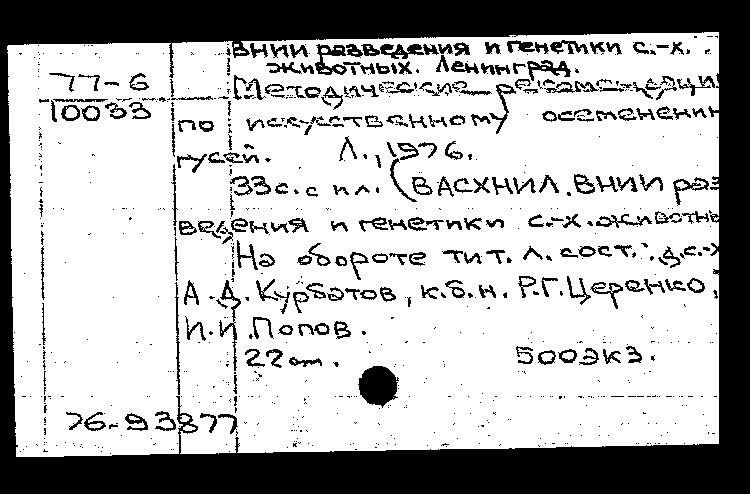 ВНИИ разведения и генетики с.-х.
животных. Ленинград.
77-6 Методические рекомендации
10033 по искусственному осеменению
гусей. Л., 1976.
33с. с ил. (ВАСХНИЛ. ВНИИ раз
ведения и генетики с.-х. животны
На обороте тит. л. сост.: д.с.-х
А.Д. Курбатов, к.б.н. Р.Г. Церенко,
И.И. Попов.
22 от. 500экз.
76-93877